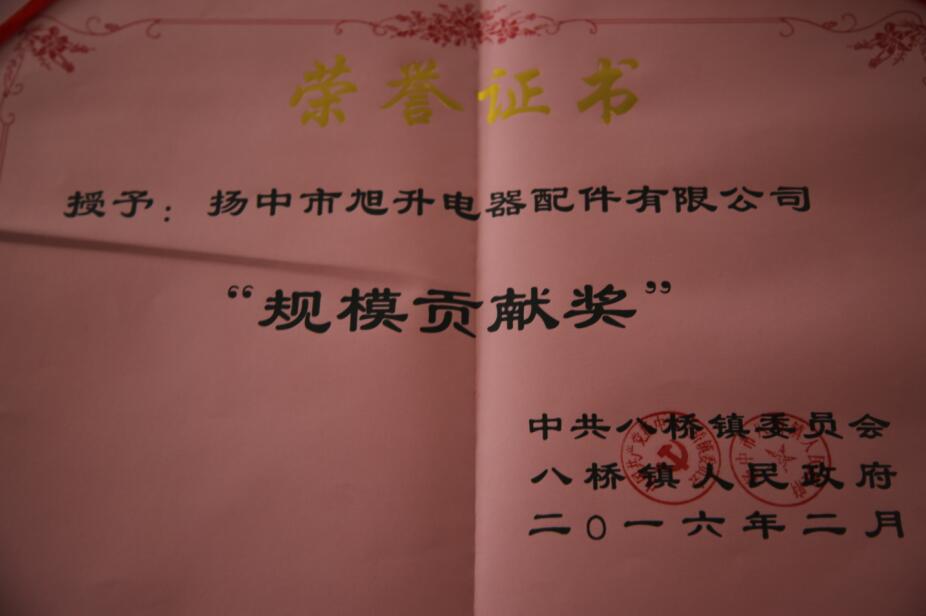 荣誉证书
授予：扬中市旭升电器配件有限公司
“规模贡献奖”
中共八桥镇委员会
八桥镇人民政府
二0一六年二月